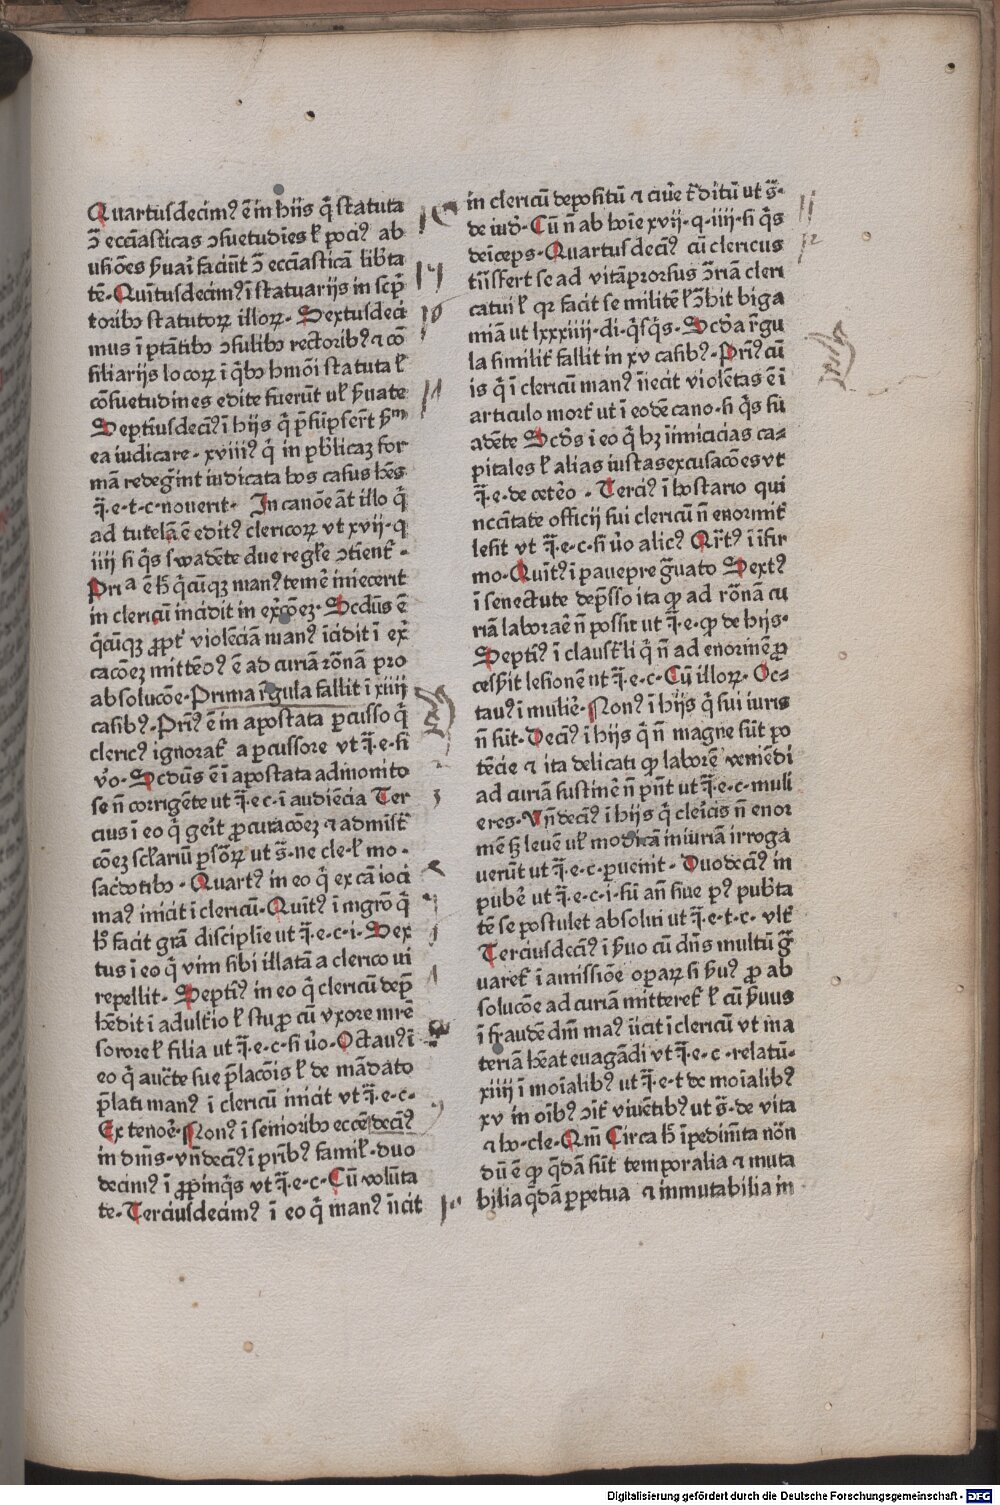 Quartusdecim᷒ ē in hijs q̄ statuta
ɔ̄ ecc̄iasticas ɔsuetudīes ł poci᷒ ab
usiōes ẜuari faciūt ɔ̄ ecc̄iasticā lib̄ta
tē. Quītusdecim᷒ ī statuarijs in sc̄p̄
toribꝫ statutoꝝ illoꝝ. Sextusdeci
mus ī ptātibꝫ ɔsulibꝫ rectorib᷒ ⁊ cō
siliarijs locoꝝ ī q̄bꝫ hmōi statuta ł
cōsuetudines edite fuerūt uł ẜuate
Septīusdecī᷒ ī hijs q̄ p̄sūpser̄t ẜm
ea iudicare. xviii᷒ q̄ in pƀlicaꝫ for
mā redeḡint iudicata hos casus hn̄s
q̄.e.t.c.nouerit. In canōe āt illo q̄
ad tutelā ē edit᷒ clericoꝝ vt xvij.q
iiij si q̄s swadēte due regl̄e ɔtient̄.
Priᵃ ē ħ q̄cūqꝫ man᷒ temē iniecerit
in clericū incidit in ex̄cōeꝫ. Scd̄us ē
q̄cūqꝫ ꝓpt̄ violēciā man᷒ īcidit ī ex̄
cacōeꝫ mittēd᷒ ē ad curiā rōnā pro
absolucōe. Prima īgula fallit ī xiiij
casib᷒. Pri᷒ ē in apostata ꝑcusso q̄
cleric᷒ ignorat̄ a ꝑcussore vt q̄.e.si
v̄o. Scdūs ē ī apostata admonito
se n̄ corrigēte ut q̄.e.c.ī audiēcia Ter
cius ī eo q̄ gerit ꝓcuracōeꝫ ⁊ admīst̄
cōeꝫ scl̄ariū ꝑsōꝝ ut s̄.ne cle.ł mo.
sac̄dotibꝫ. Quart᷒ in eo q̄ ex cā ioci
ma᷒ inicit ī clericū. Quīt᷒ ī mgrō q̄
ħ facit grā disciplīe ut q̄.e.c.i. Sex
tus ī eo q̄ vim sibi illatā a clerico ui
repellit. Septī᷒ in eo q̄ clericū dep̄
hēdit ī adult̄io ł stuꝓ cū vxore mr̄e
sorore ł filia ut q̄.e.c.si ūo. Octau᷒ ī
eo q̄ auct̄e sue p̄lacōis ł de mādato
p̄lati man᷒ ī clericū inicit vt q̄.e.c.
Ex tenoē. Non᷒ ī senioribꝫ ecc̄e decī᷒
in dn̄is. vn̄decī᷒ ī pr̄ib᷒ famił. duo
decim᷒ ī ꝓpīnq̄s vt q̄.e.c. Cū volūta
te. Terciusdecim᷒ ī eo q̄ man᷒ īicit
in clericū depositū ⁊ ciūe t̄ditū ut s̄.
de iud̄. Cū n̄ ab hoīe xvij.q.iiij.si q̄s
deīceps. Quartusdecī᷒ cū clericus
tn̄sfert se ad vitā prorsus ɔ̄riā cleri
catui ł qꝛ facit se militē ł ɔ̄hit biga
miā ut lxxxiiij.di.q̄sq̄s. Scd̄a r̄gu
la similit̄ fallit in xv casib᷒. Pri᷒ cū
is q̄ ī clericū man᷒ īiecit violētas ē ī
articulo mort̄ ut ī eodē cano.si q̄s su
adēte Scd̄s ī eo q̄ hꝫ īimicicias ca⸗
pitales ł alias iustas excusacōes vt
q̄.e.de cetēo. Terci᷒ ī hostario qui
nccītate officij sui clericū n̄ enormit̄
lesit vt q̄.e.c.si ūo alic᷒ Qr̄t᷒ ī īfir
mo. Quīt᷒ ī paupere ḡuato Sext᷒
ī senectute dep̄sso ita ꝙ ad rōnā cu
riā laboraē n̄ possit ut q̄.e.ꝙ de hijs.
Septī᷒ ī claust̄li q̄ n̄ ad enormē ꝓ
cesẜit lesionē ut q̄.e.c. Cū illoꝝ. Oc⸗
tau᷒ ī muliē. Non᷒ ī hijs q̄ sui iuris
n̄ sūt. Decī᷒ ī hijs q̄ n̄ magne sūt po
tēcie ⁊ ita delicati ꝙ laborē veniēdi
ad curiā sustinē n̄ pn̄t ut q̄.e.c.muli
eres. Vn̄decī᷒ ī hijs q̄ cleīcis n̄ enor
mē sꝫ leuē uł modicā iniuriā irroga
uerūt ut q̄.e.c.ꝑuenit. Duodecī᷒ in
pubē ut q̄.e.c.i.siū an̄ siue p᷒ pub̄ta
tē se postulet absolui ut q̄.e.t.c. vlt̄
Terciusdecī᷒ ī ẜuo cū dn̄s multū ḡ
uaret̄ ī amissiōe oꝑaꝝ si ẜu᷒ ꝓ ab
solucōe ad curiā mitteret̄ ł cū ẜuus
ī fraudē dn̄i ma᷒ īicit ī clericū vt ma
teriā hēat euagādi vt q̄.e.c.relatū.
xiiij ī moīalib᷒ ut q̄.e.t de moīalib᷒
xv in oīb᷒ ɔīt̄ viuētib᷒ ut s̄.de vita
⁊ ho.cle. Qm̄ Circa ħ īpedimīta nōn
dū ē ꝙ q̄dā sūt temporalia ⁊ muta
bilia q̄dā ꝑpetua ⁊ immutabilia in
Digitalisierung gefördert durch die Deutsche Forschungsgemeinschaft - DFG